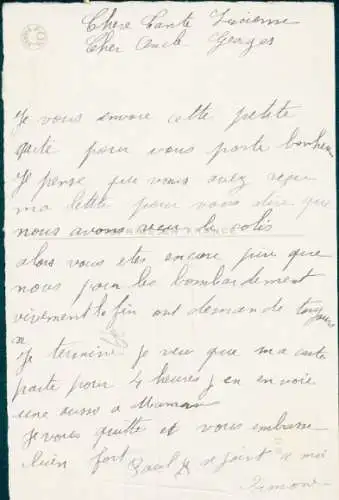 Chere Tante Lucienne
Cher Oncle Georges
Je vous envoie cette petite
carte pour vous porte bonheur
Je pense que vous avez reçu
ma lettre pour vous dire que
nous avons reçu le colis
alors vous etes encore pire que
nous pour les bombardement
vivement la fin ont demande toujours
Je termine je veu que ma carte
parte pour 4 heures j en envoie
une aussi a Maman
Je vous quitte et vous embrasse
bien fort Paul se joint a moi